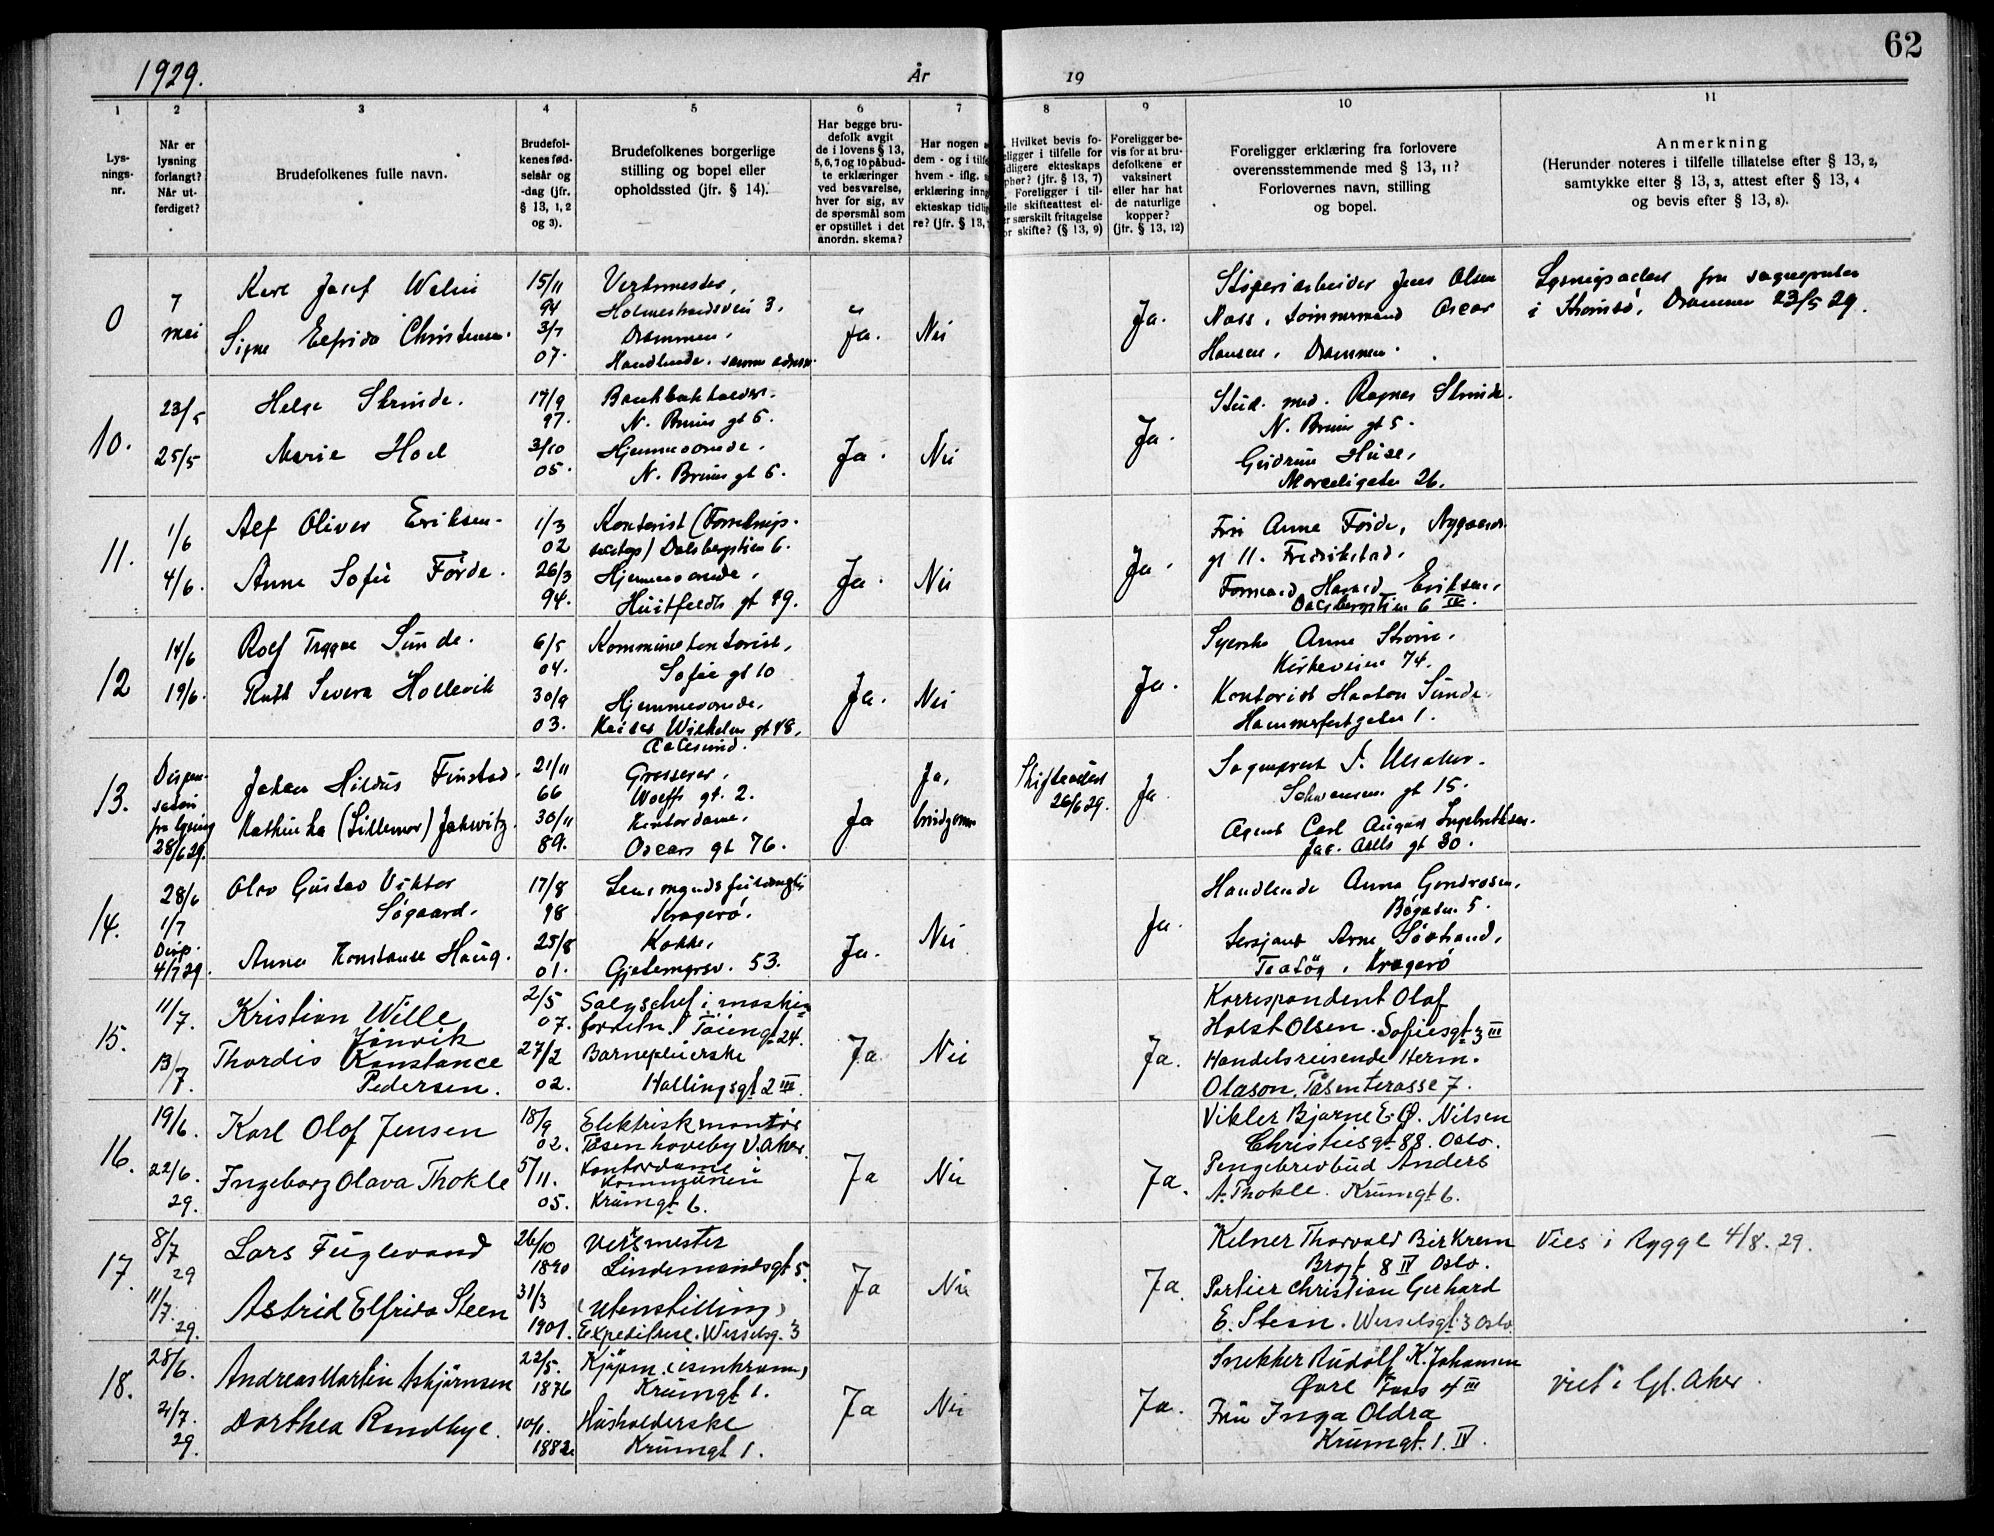 62
1929.
År
19
1
2
3
4
5
6
7
8
9
10
11
Lys-
nings-
nr.
Når er
lysning
forlangt?
Når ut-
ferdiget?
Brudefolkenes fulle navn.
Brudefol-
kenes fød-
selsår og
-dag (jfr.
§ 13, 1, 2
og 3).
Brudefolkenes borgerlige
stilling og bopel eller
opholdssted (jfr. § 14).
Har begge bru-
defolk avgit
de i lovens § 13,
5, 6, 7 og 10 påbud-
te erklæringer
ved besvarelse,
hver for sig, av
de spørsmål som
er opstillet i det
anordn. skema?
Har nogen
dem - og i tilfe
hvem - iflg.
erklæring inng
ekteskap tidlig
re? (jfr. § 13,
Hvilket bevis fo-
eligger i tilfelle for
idligere ekteskaps
phør? (jfr. § 13, 7)
Foreligger i til-
elle skifteattest el-
er særskilt fritagelse
or skifte? (§ 13, 9)
Foreligger be-
vis for at bru-
defolkene er
vaksinert
eller har hat
de naturlige
kopper?
(jfr. § 13, 12)
Foreligger erklæring fra forlovere
overensstemmende med § 13, 11?
Forlovernes navn, stilling
og bopel.
Anmerkning
(Herunder noteres i tilfelle tillatelse efter § 13, 2,
samtykke efter § 13, 3, attest efter § 13, 4
og bevis efter § 13, 8).
0
7
mai
Karl Josef Welin
Signe Elfrida Christensen.
15/11
94
3/7
07.
Verksmester,
Holmestrandsveien 3,
Drammen,
Handlende. samme adresse.
Ja.
Nei
Ja.
Støperiarbeider Jens Olsen
Næss, Tømmermand Oscar
Hansen, Drammen.
Lysningsattest fra sognepresten
i Strømsø, Drammen 23/5 29.
10.
23/5
25/5
Helge Strinde.
Marie Hoel
17/9
97.
3/10
05.
Bankbokholder.
N. Bruns gt 6.
Hjemmeværende.
N. Bruns gt 6.
Ja.
Nei
Ja.
Stud. med. Ragnar Strinde.
N. Bruns gt 5.
Gudrun Huse,
Marceligaten 26.
11.
1/6
4/6.
Alf Oliver Eriksen.
Anna Sofie Förde.
1/3
02
26/3
94.
Kontorist (Forretnings-
) Dalsbergstien 6.
Hjemmeværende,
Huitfeldts gt 49.
Ja.
Nei
Ja.
Fru Anne Förde, Nygaards-
gt 11. Fredrikstad,
Formand Harald Eriksen,
Dalsbergstien 6 IV.
12
14/6
19/6.
Rolf Tryggve Sunde.
Ruth Severa Hollevik
6/5
04.
30/9
03.
Kommunekontorist,
Sofie gt 10
Hjemmeværende,
Keiser Wilhelms gt 48,
Aalesund.
Ja.
Nei
Ja.
Syerske Anna Strøm,
Kirkeveien 74.
Kontorist Haakon Sunde.
Hammerfestgaten 1.
13.
Dispen-
sasion
fra lysning
28/6 29.
Johan Hildus Finstad.
Kathinka (Lillemor) Jakwitz.
21/11
66
30/11
89.
Grosserer,
Wolffs gt. 2.
Kontordame,
Oscars gt 76.
Ja
Ja,
brudgommen
Skifteattest
26/6 29.
Ja
Sogneprest S. .
Schwensens gt 15.
Agent Carl August Ingebretsen.
Jac. Aalls gt 30.
14.
28/6
1/7
Disp.
4/7 29.
Olav Gustav Viktor
Søgaard.
Anna Konstanse Haug.
17/8
98
25/8
01.
Lensmandsfuldmægtig
Kragerø.
Kokke,
Gjetemyrsv. 53.
Ja.
Nei
Ja.
Handlende Anna Gondrosen,
Bøgaten 5.
Sersjant Arne Søstrand,
Taatøy, Kragerø
15.
11/7.
13/7.
Kristian Wille
Jønvik
Thordis Konstance
Pedersen.
2/5
07.
27/2
02.
Salgschef i maskin-
forretn. Tøiengt 24.
Barnepleierske
Hallingsgt 2 III.
Ja
Nei
Ja.
Korrespondent Olaf
Holst Olsen. Sofiesgt 3 III
Handelsreisende Herm.
Olason, Tåsenterasse 7.
16.
19/6.
22/6.
29.
Karl Olaf Jensen
Ingeborg Olava Thokle
18/9
02.
5/11.
05.
Elektriskmontør
Tåsen haveby V. Aker.
Kontordame i
Kommunen
Krumgt 6.
Ja
Nei
Ja.
Vikler Bjarne E. Ø. Nilsen
Christiesgt 88. Oslo.
Pengebrevbud Anders
A. Thokle. Krumgt 6.
17.
8/7
29
11/7.
29.
Lars Fuglevand
Astrid Elfrida Steen
26/10
1890
31/3
1901.
Verksmester
Lindemansgt 5.
(utenstilling)
Expeditrise. Wesselsg. 3
Ja
Nei
Ja.
Kelner Thorvald Birkrem
Brogt 8 IV Oslo.
Portier Christian Gerhard
E. Steen. Wesselsgt 3 Oslo
Vies i Rygge 4/8. 29.
18.
28/6.
2/7.
29.
Andreas Martin Asbjørnsen
Dorthea Rundhye.
22/5.
1876
10/1.
1882.
Kjøpm. (isenkram)
Krumgt 1.
Husholderske
Krumgt 1.
Ja
Nei
Ja.
Snekker Rudolf K. Johansen
Øvre Foss 4 III
Fru Inga Oldra
Krumgt. 1. IV.
viet i Gl. Aker.